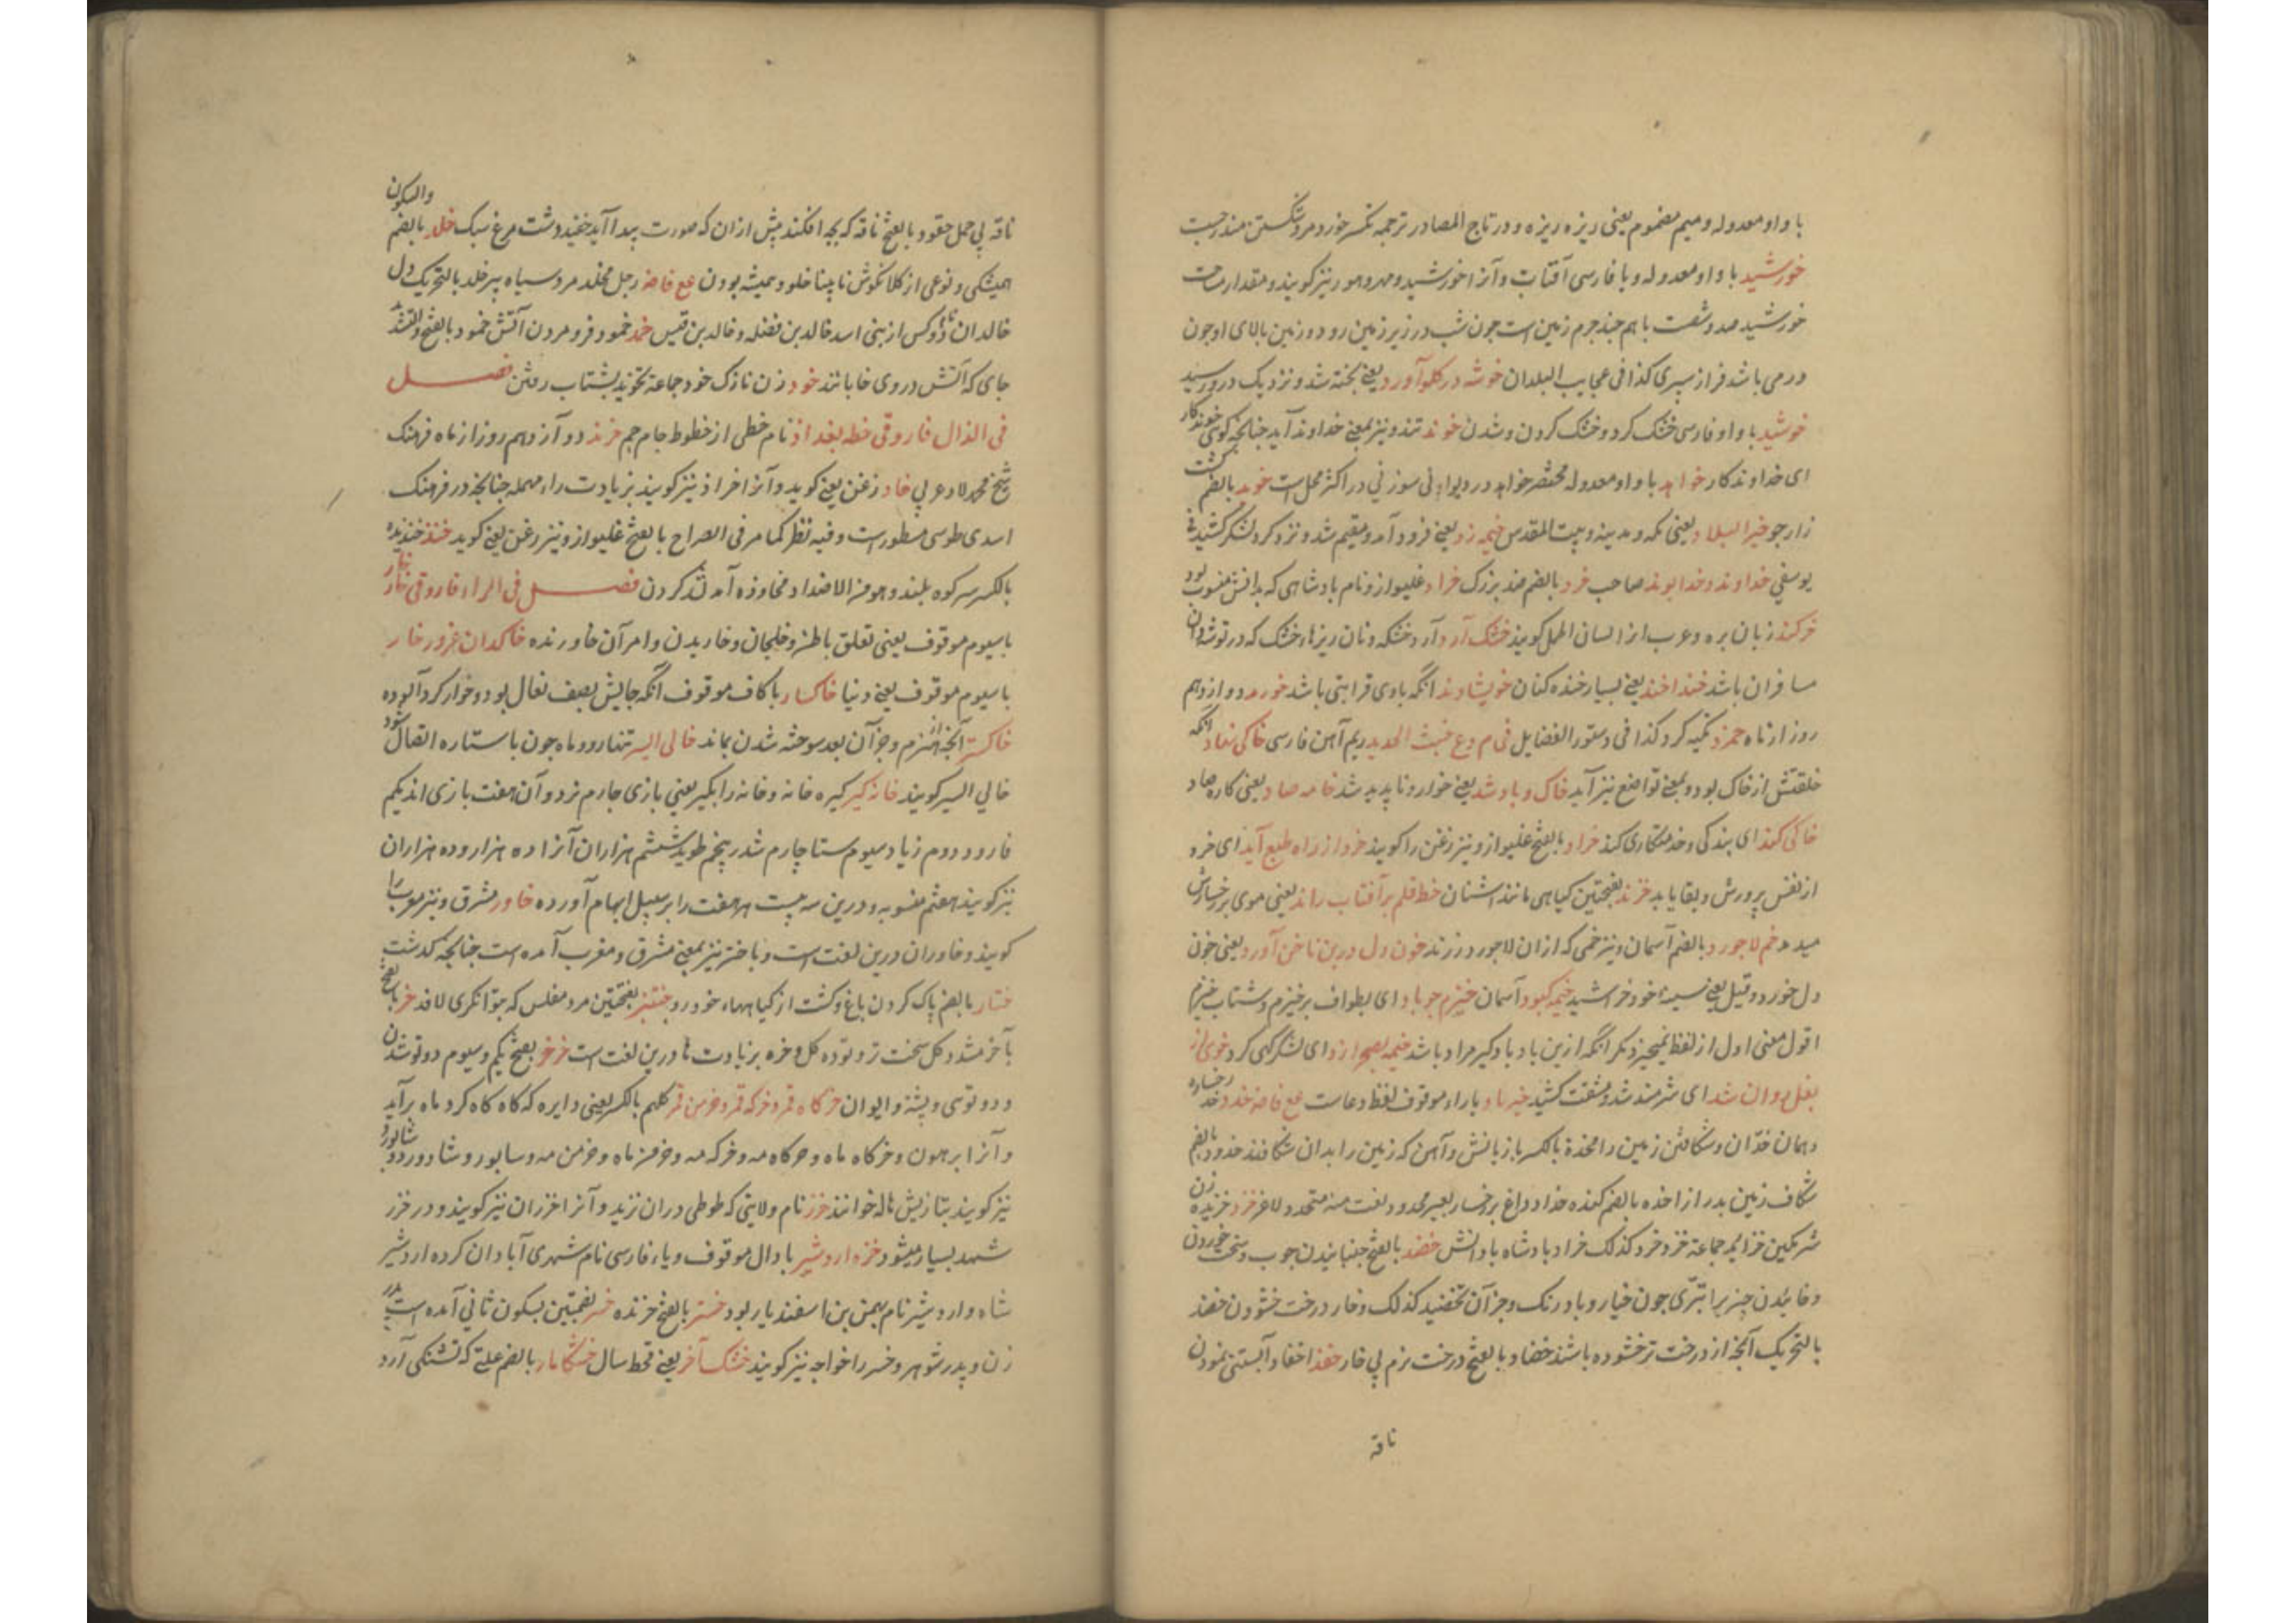 با واو معدوله و میم مضموم یعنی ریزه ریزه و در تاج المصادر ترجمه تکسر خورد و مرد شکستن مندرجست
خورشید با واو معدوله و یا فارسی آفتاب و آنرا خورشید و مهر و هور نیز کویند و مقدار مساحت
خورشید صد و شصت با هم چند جرم زمین است چون شب در زیر زمین رود و زمین بالای او چون
در می باشد فراز سپری کذا فی عجایب البلدان خوشه در کلو آورد یعنی پخته شد و نزدیک درو رسید
خوشید با واو فارسی خشک کرد و خشک کردن و شدن خوند تند و نیز بمعنی خداوند آید چنانچه کوی خوندکار
ای خداوندکار خواهد با واو معدوله مختصر خواهد در دیوان سوزنی در اکثر محل است خوید بالضم کشت
زار جو خیر البلاد یعنی مکه و مدینه و بیت المقدس خیمه زد یعنی فرود آمد و مقیم شد و نزد کرد لشکر کشید فی
یوسفی خداوند و خدایوند صاحب خرد بالضم ضد بزرک خراد غلیواز و نام پادشاهی که بدانش منسوب بود
خرکند زبان بره و عرب انرا لسان الحمل کویند خشک آرد آرد خشکه و نان ریزهاء خشک که در توشه دان
مسافران باشد خنداخند یعنی بسیار خنده کنان خویشاوند آنکه با وی قرابتی باشد خورمد دوازدهم
روز از ماه خمرد تکیه کرد کذا فی دستور الفضایل فی م وع خبث الحدید ریم آهن فارسی خاکی نهاد آنکه
خلقتش از خاک بود و بمعنی تواضع نیز آید خاک و باد شد یعنی خوار و ناپدید شد خامه صاد یعنی کاره صاد
خاکی کند ای بندکی و خدمتکاری کند خراد بالفتح غلیواز و نیز زغن را کویند خرد از راه طبع آید ای خرد
از نفس پرورش و بقا یابد خزند بفتحتین کیاهی مانند اشنان خط قلم بر آفتاب راند یعنی موی بر رخسارش
میدمد خم لاجورد بالضم آسمان و نیز خمی که از ان لاجورد ریزند خون دل درین ناخن آورد یعنی خون
دل خورد و قیل یعنی سینه خود خراشید خیمه کبود آسمان خیزم چو باد ای بطواف برخیزم و شتاب خیزم
اقول معنی اول از لفظ نمیخیزد مکر آنکه ازین باد باد کیر مراد باشد خیمه بصحرا زد ای لشکرکهی کرد خوی از
بغل روان شد ای شرمنده شد و مشقت کشید خیرباد با راء موقوف لفظ دعاست مع فاضه خد رخساره
دهان خدّان و شکافتن زمین را مخدة بالکسر باز بانش و آهن که زمین را بدان شکافند خدود بالضم
شکاف زمین بدر از اخده بالضم کنده خداد داغ بر رخسار بعیر مخدود لغت منه متخدد لاغر خرد خریده زن
شرمکین خرایه جماعة خرد خرد کذلک خراد پادشاه با دانش خضد بالفتح جنبانیدن چوب و سخت خوردن
و خائیدن چیز را تبرّی چون خیار و بادرنک و جز آن تخضید کذلک و خار درخت خشودن خضد
بالتحریک آنچه از درخت تر خشوده باشند خضاد بالفتح درخت نرم بی خار خفد اخفاد آبستنی نمودن
ناقه
ناقه بی حمل حقود بالفتح ناقه که بچه افکند پیش ازان که صورت پیدا آید خفید دشت مرغ سبک خلد بالضم والسکون
همیشکی و نوعی از کلانکوش نابینا خلود همیشه بودن مع فاضه رجل مخلد مرد سیاه پیر خلد بالتحریک دل
خالدان نام دو کس از بنی اسد خالد بن نضله و خالد بن قیس خمد خمود فرو مردن آتش خمود بالفتح والتشدید
جای که آتش در وی خابانند خود زن نازک خود جماعة تخوید بشتاب رفتن فصل
فی الذال فاروقی خطه بغداد نام خطی از خطوط جام جم خرند دوازدهم روز از ماه فرهنک
شیخ محمد لاد عربی خاد زغن یعنی کوید و آنرا خراذ نیز کویند بزیادت راء مهمله چنانچه در فرهنک
اسدی طوسی مسطور است و فیه نظر کما مر فی الصراح بالفتح غلیواز و نیز زغن یعنی کوید خنذ خنذیذ
بالکسر سر کوه بلند و هو من الاضداد مخاوذه آمد شد کردن فصل فی الراء فاروقی خار خار
با سیوم موقوف یعنی تعلق باطن و خلجان و خاریدن و امر آن خاورنده خاکدان غرور خار
با سیوم موقوف یعنی دنیا خاکسار با کاف موقوف آنکه جایش بصف نعال بود و خوار کرد آلوده
خاکستر آنچه از هیزم و جز آن بعد سوخته شدن بماند خالی السیر تنها رو و ماه چون با ستاره اتصال شود
خالی السیر کویند خانه کیر کیره خانه و خانه را بکیر یعنی بازی چارم نرد و آن هفت بازی اند یکم
فارد دوم زیاد سیوم ستا چارم شدر پنجم طویل ششم هزاران آنرا ده هزار و ده هزاران
نیز کویند هفتم منصوبه و درین سه بیت هر هفت را بر سبیل ابهام آورده خاور مشرق و نیز مغرب را
کویند و خاوران درین لغت است و باختر نیز بمعنی مشرق و مغرب آمده است چنانچه کذشت
ختار بالضم پاک کردن باغ و کشت از کیاهها خود رو ختنبر بفتحتین مرد مفلس که بتوانکری لافد خر بالفتح
با خر مشدد کل سخت تر و توده کل و خره بزیادت ها درین لغت است خرخر بفتح یکم و سیوم دو تو شدن
و دو توسی و پشته و ایوان خرکاه قمر و خرکه قمر و خرمن قمر کلهم بالکسر یعنی دایره که کاه کاه کرد ماه بر آید
و آنرا برهون و خرکاه ماه و خرکاه مه و خرکه مه و خرمن ماه و خرمن مه و سابور و شادورد و شابورد
نیز کویند بتازیش هاله خوانند خزر نام ولایتی که طوطی دران نزید و آنرا خزران نیز کویند و در خزر
شهد بسیار میشود خره اردشیر با دال موقوف و یاء فارسی نام شهری آبادان کرده اردشیر
شاه و اردشیر نام بهمن بن اسفندیار بود خستر بالفتح خزنده خسر بضمتین بسکون ثانی آمده است پدر
زن و پدر شوهر و خسر را خواجه نیز کویند خشک آخر یعنی قحط سال خشکامار بالضم علتی که تشنکی آرد